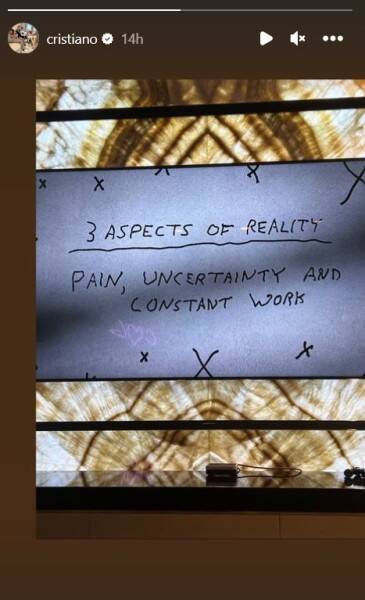 cristiano 14h
3 ASPECTS OF REALITY
PAIN, UNCERTAINTY AND
CONSTANT WORK